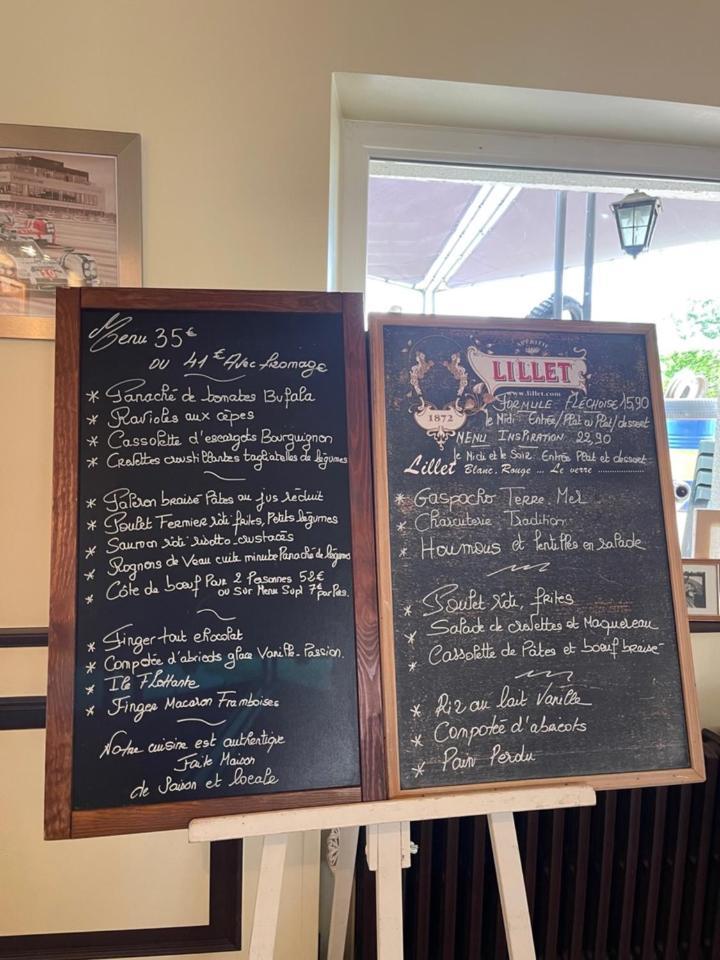 Menu 35€
ou 41€ Avec fromage
* Panaché de tomates Bufala
* Ravioles aux cèpes
* Cassolette d'escargots Bourguignon
* Crevettes croustillantes tagliatelles de légumes
* Paleron braisé Pates au jus réduit
* Poulet Fermier rôti frites, Petits légumes
* Saumon rôti risotto crustacés
* Rognons de Veau cuite minute Panaché de légumes
* Côte de bœuf Pour 2 Personnes 52€
ou Sur Menu Supl 7€ par Pers.
* Finger tout chocolat
* Compotée d'abricots glace Vanille-Passion.
* Ile Flottante
* Finger Macaron Framboises
Notre cuisine est authentique
Faite Maison
de Saison et locale
APÉRITIF
LILLET
www.lillet.com
1872
FORMULE FLÉCHOISE 15,90
le Midi Entrée/Plat ou Plat/dessert
MENU INSPIRATION 22,90
le Midi et le Soir Entrée Plat et dessert
Lillet Blanc, Rouge ... Le verre ................
* Gaspacho Terre Mer
* Charcuterie Tradition
* Houmous et lentilles en salade
* Poulet rôti, frites
* Salade de crevettes et Maquereau
* Cassolette de Pates et boeuf braisé
* Riz au lait Vanille
* Compotée d'abricots
* Pain Perdu